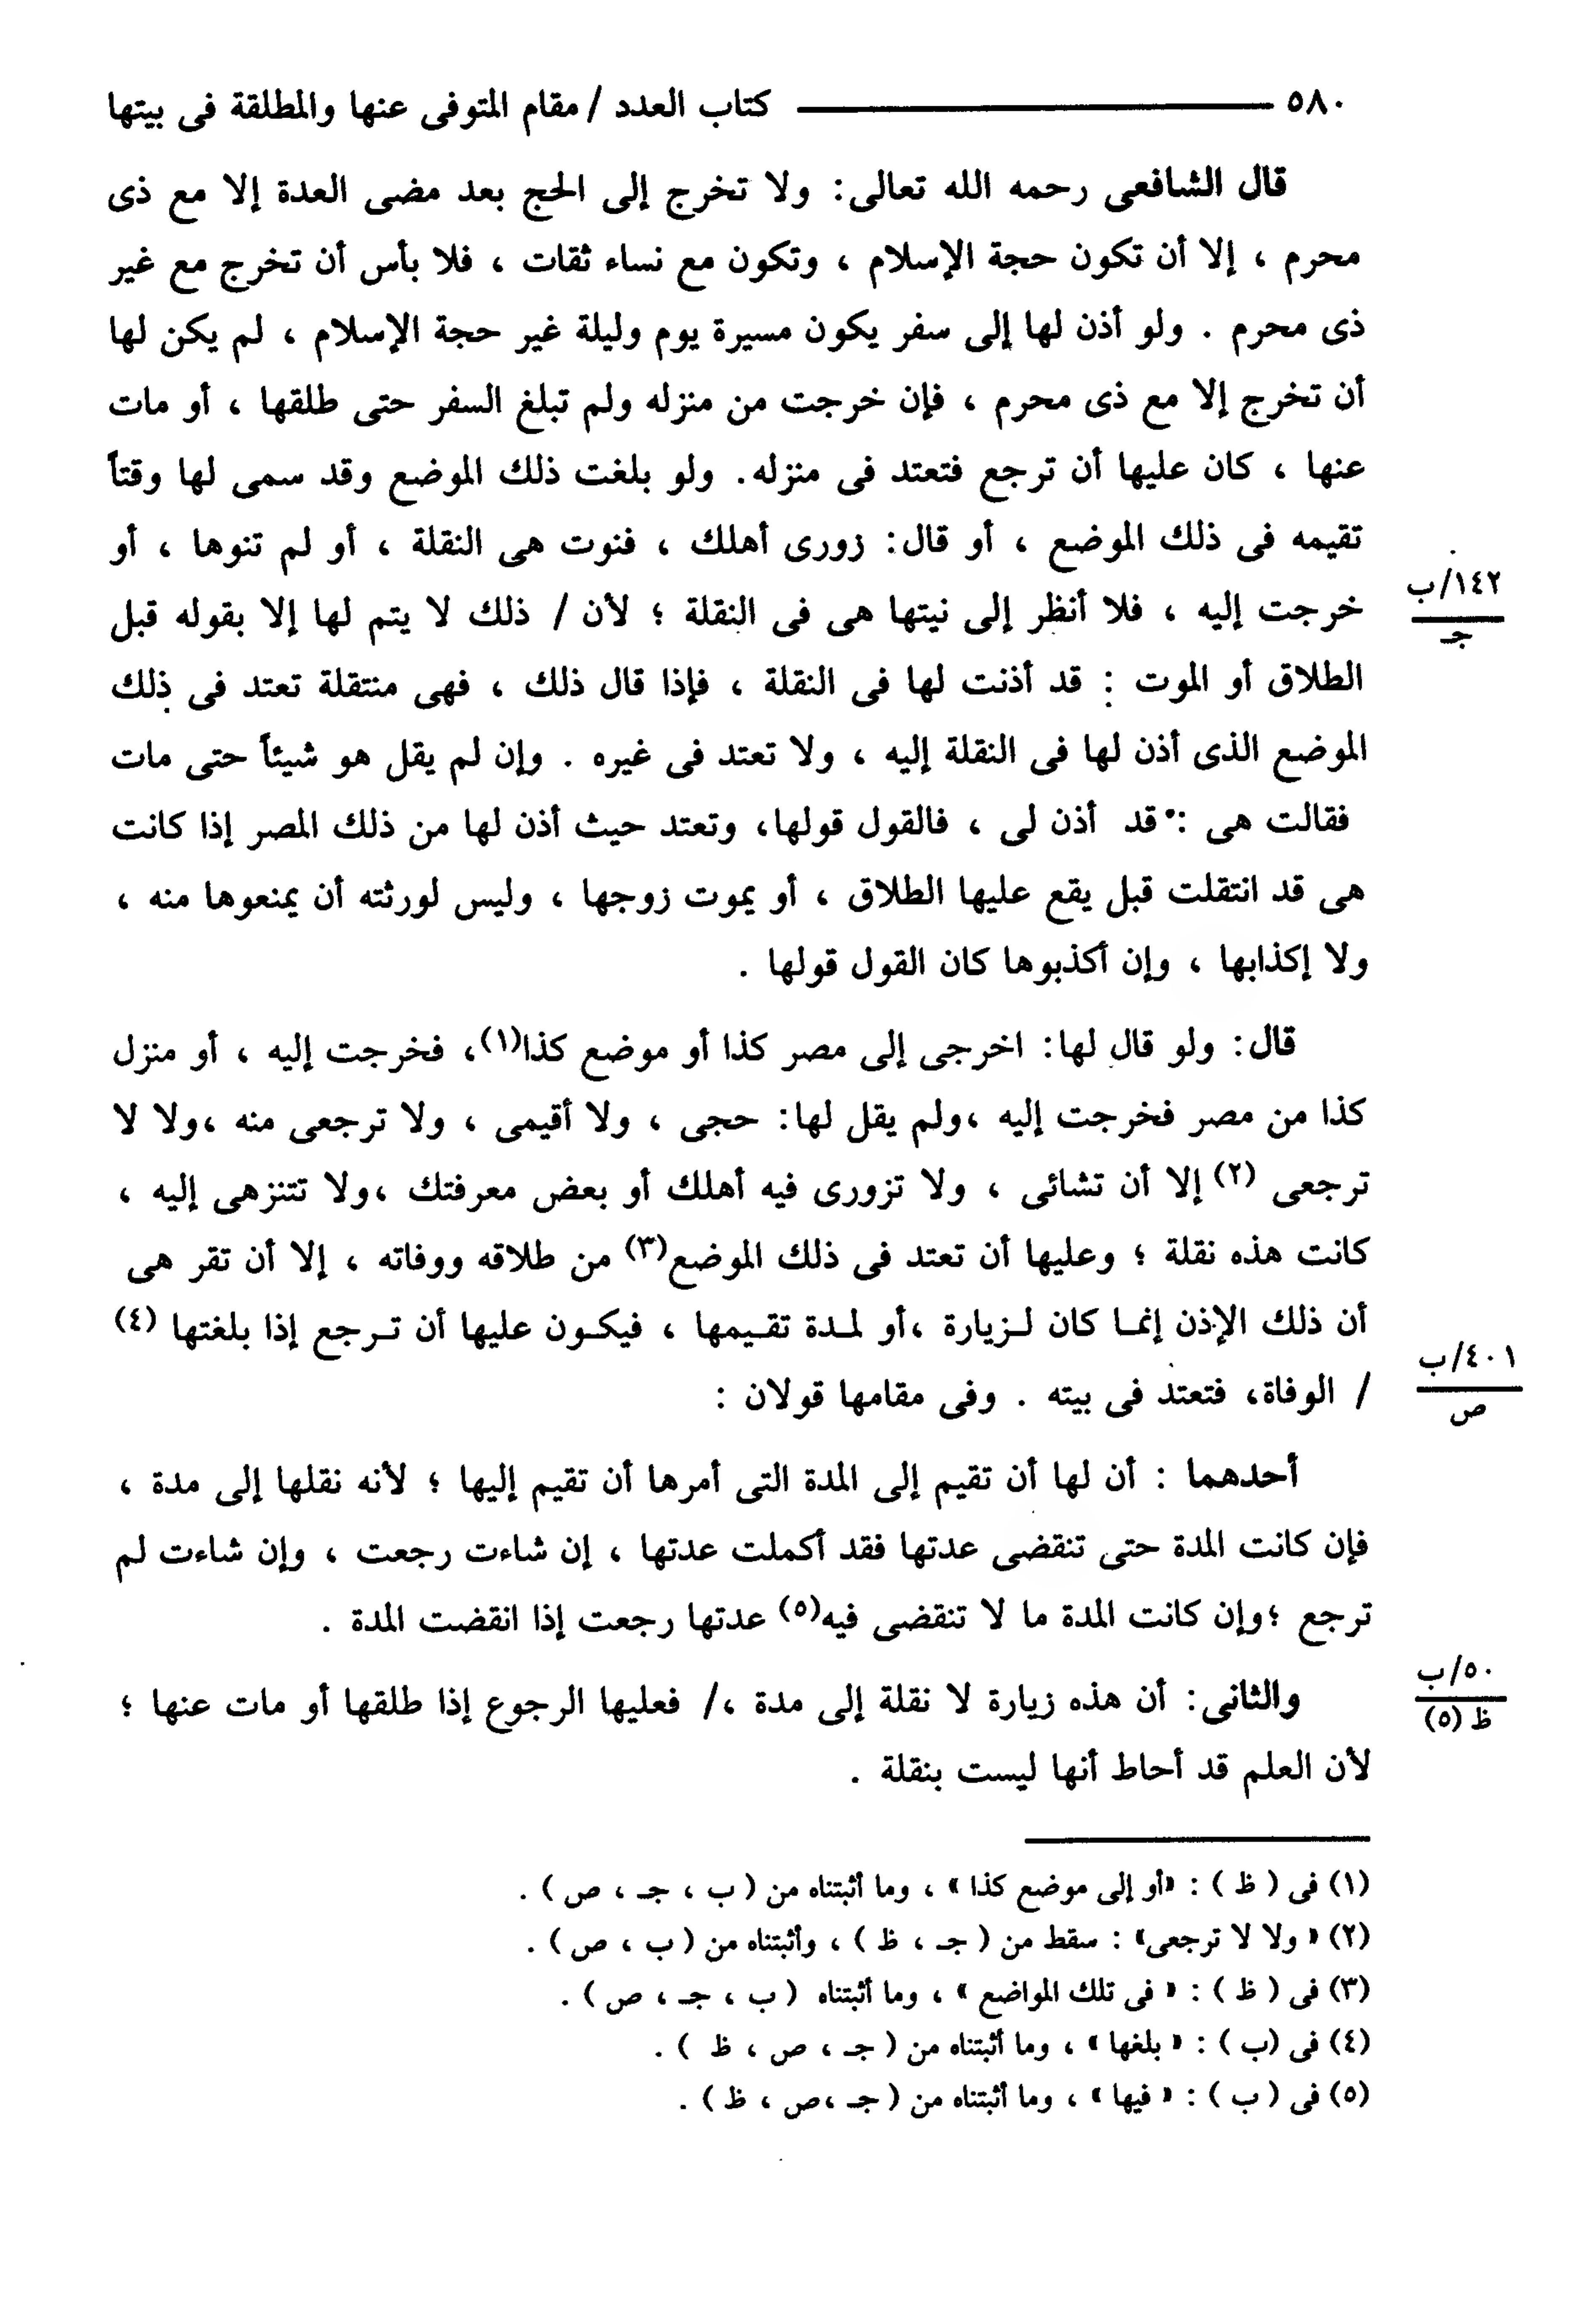 ٥٨٠ ــــــــــــــــــــ كتاب العدد / مقام المتوفى عنها والمطلقة فى بيتها
قال الشافعى رحمه الله تعالى: ولا تخرج إلى الحج بعد مضى العدة إلا مع ذى
محرم ، إلا أن تكون حجة الإسلام ، وتكون مع نساء ثقات ، فلا بأس أن تخرج مع غير
ذى محرم . ولو أذن لها إلى سفر يكون مسيرة يوم وليلة غير حجة الإسلام ، لم يكن لها
أن تخرج إلا مع ذى محرم ، فإن خرجت من منزله ولم تبلغ السفر حتى طلقها ، أو مات
عنها ، كان عليها أن ترجع فتعتد فى منزله. ولو بلغت ذلك الموضع وقد سمى لها وقتاً
تقيمه فى ذلك الموضع ، أو قال: زورى أهلك ، فنوت هى النقلة ، أو لم تنوها ، أو
١٤٢/ب
خرجت إليه ، فلا أنظر إلى نيتها هى فى النقلة ؛ لأن / ذلك لا يتم لها إلا بقوله قبل
جـ
الطلاق أو الموت : قد أذنت لها فى النقلة ، فإذا قال ذلك ، فهى منتقلة تعتد فى ذلك
الموضع الذى أذن لها فى النقلة إليه ، ولا تعتد فى غيره . وإن لم يقل هو شيئاً حتى مات
فقالت هى : قد أذن لى ، فالقول قولها، وتعتد حيث أذن لها من ذلك المصر إذا كانت
هى قد انتقلت قبل يقع عليها الطلاق ، أو يموت زوجها ، وليس لورثته أن يمنعوها منه ،
ولا إكذابها ، وإن أكذبوها كان القول قولها .
قال: ولو قال لها: اخرجى إلى مصر كذا أو موضع كذا(١)، فخرجت إليه ، أو منزل
كذا من مصر فخرجت إليه ،ولم يقل لها: حجى ، ولا أقيمى ، ولا ترجعى منه ،ولا لا
ترجعى (٢) إلا أن تشائى ، ولا تزورى فيه أهلك أو بعض معرفتك ،ولا تتنزهى إليه ،
كانت هذه نقلة ؛ وعليها أن تعتد فى ذلك الموضع(٣) من طلاقه ووفاته ، إلا أن تقر هى
أن ذلك الإذن إنما كان لـزيارة ،أو لمـدة تقـيمها ، فيكـون عليها أن تـرجع إذا بلغتها (٤)
٤٠١/ب
/ الوفاة، فتعتد فى بيته . وفى مقامها قولان :
ص
أحدهما : أن لها أن تقيم إلى المدة التى أمرها أن تقيم إليها ؛ لأنه نقلها إلى مدة ،
فإن كانت المدة حتى تنقضى عدتها فقد أكملت عدتها ، إن شاءت رجعت ، وإن شاءت لم
ترجع ؛وإن كانت المدة ما لا تنقضى فيه(٥) عدتها رجعت إذا انقضت المدة .
٥٠/ب
والثانى: أن هذه زيارة لا نقلة إلى مدة ،/ فعليها الرجوع إذا طلقها أو مات عنها ؛
ظ (٥)
لأن العلم قد أحاط أنها ليست بنقلة .
(١) فى ( ظ ) : «أو إلى موضع كذا » ، وما أثبتناه من ( ب ، جـ ، ص ) .
(٢) « ولا لا ترجعى» : سقط من ( جـ ، ظ ) ، وأثبتناه من ( ب ، ص ) .
(٣) فى ( ظ ) : « فى تلك المواضع » ، وما أثبتناه ( ب ، جـ ، ص ) .
(٤) فى (ب ) : « بلغها » ، وما أثبتناه من ( جـ ، ص ، ظ ) .
(٥) فى ( ب ) : « فيها » ، وما أثبتناه من ( جـ ،ص ، ظ ) .